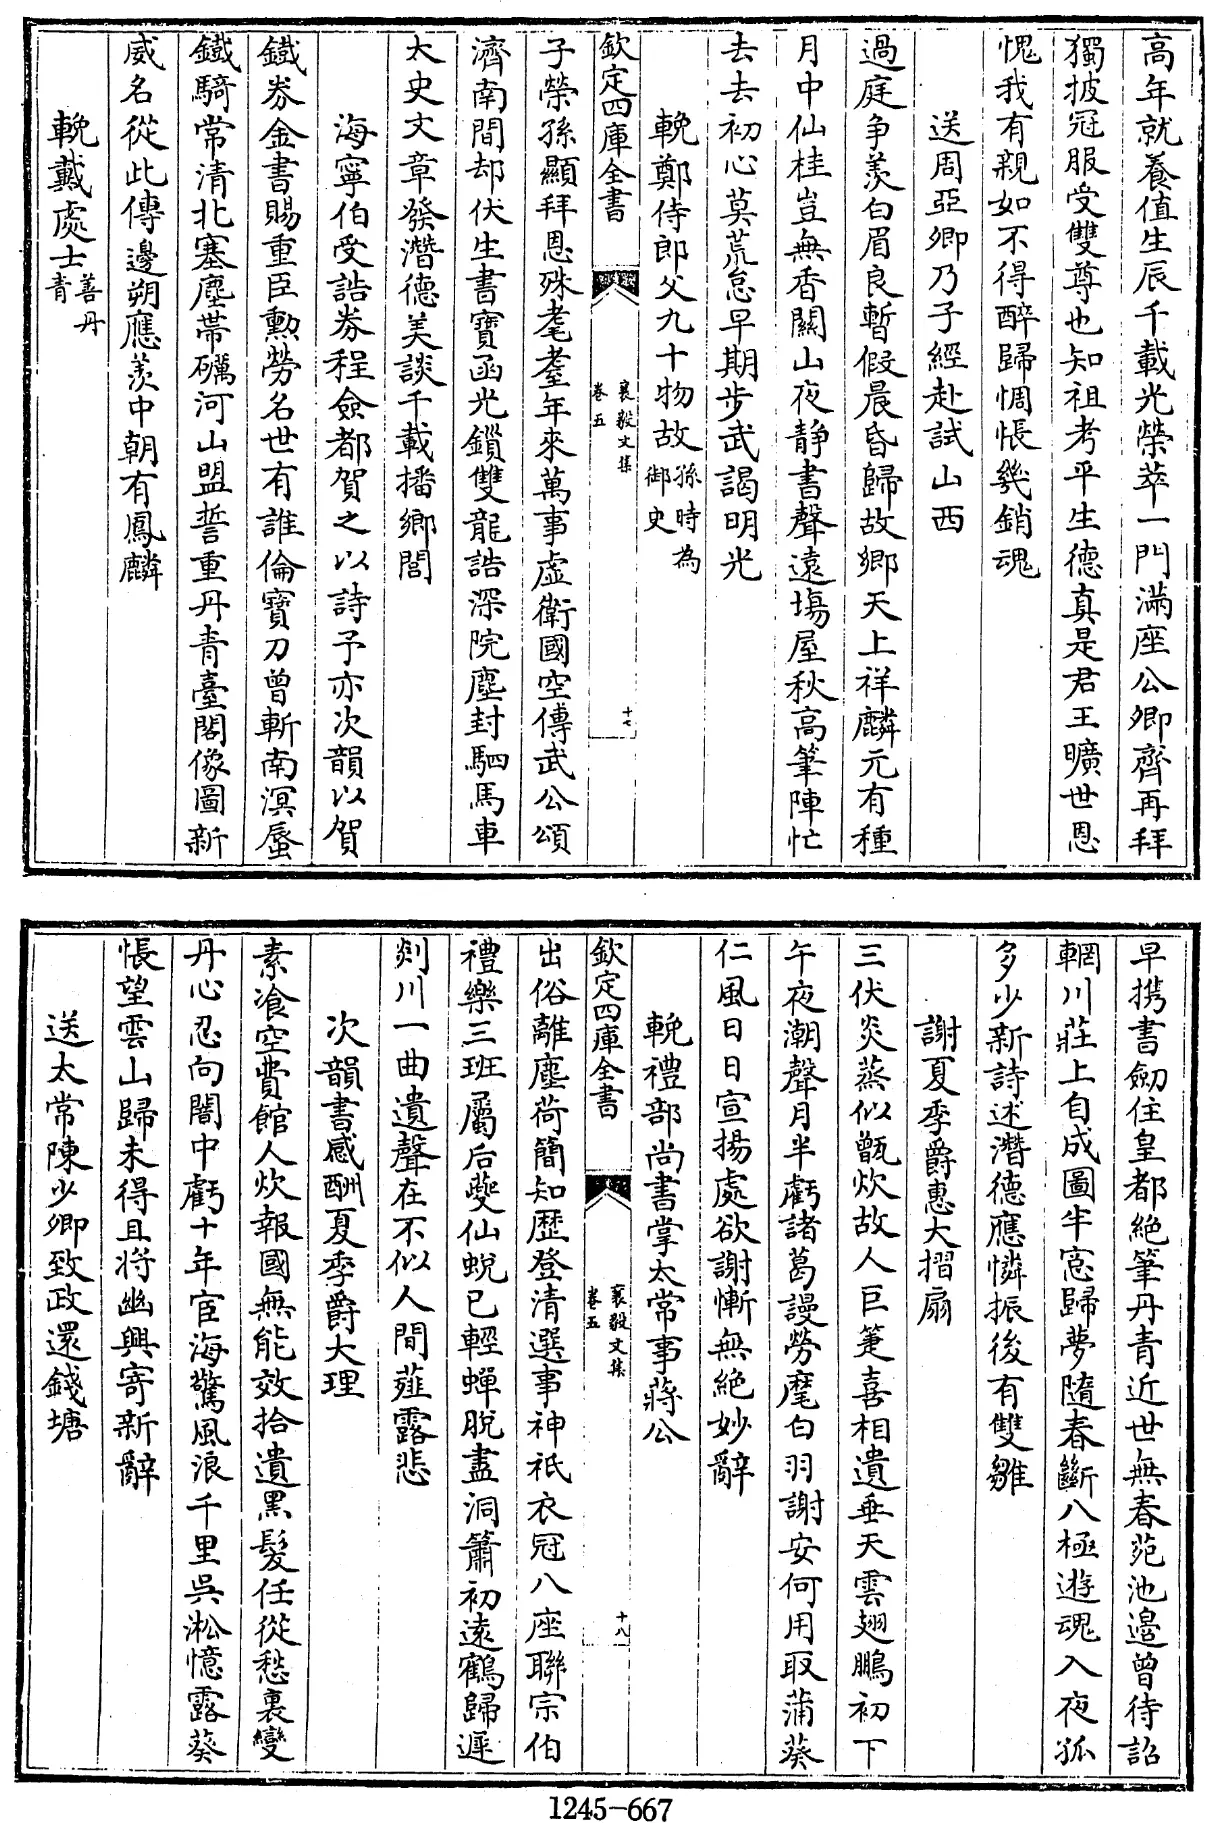 高年就養值生辰千載光榮萃一門滿座公卿齊再拜
獨披冠服受雙尊也知祖考平生德真是君王曠世恩
愧我有親如不得醉歸惆悵幾銷魂
送周亞卿乃子經赴試山西
過庭争羨白眉良暫假晨昏歸故鄉天上祥麟元有種
月中仙桂豈無香關山夜静書聲遠塲屋秋高筆陣忙
去去初心莫荒怠早期步武謁明光
輓鄭侍郎父九十物故孫時為御史
欽定四庫全書
襄毅文集
卷五
十七
子榮孫顯拜恩殊耄耋年來萬事虛衛國空傳武公頌
濟南間却伏生書寶函光鎖雙龍誥深院塵封駟馬車
太史文章發潛德美談千載播鄉閭
海寧伯受誥券程僉都賀之以詩予亦次韻以賀
鐵券金書賜重臣勲勞名世有誰倫寶刀曾斬南溟蜃
鐵騎常清北塞塵帶礪河山盟誓重丹青臺閣像圖新
威名從此傳邊朔應羨中朝有鳳麟
輓戴處士善丹青
早携書劒住皇都絶筆丹青近世無春苑池邉曾待詔
輞川莊上自成圖半窓歸夢隨春斷八極遊魂入夜孤
多少新詩述潛德應憐振後有雙雛
謝夏季爵惠大摺扇
三伏炎蒸似甑炊故人巨箑喜相遺垂天雲翅鵬初下
午夜潮聲月半虧諸葛謾勞麾白羽謝安何用取蒲葵
仁風日日宣揚處欲謝慚無絶妙辭
輓禮部尚書掌太常事蔣公
欽定四庫全書
襄毅文集
卷五
十八
出俗離塵荷簡知歷登清選事神祇衣冠八座聯宗伯
禮樂三班屬后夔仙蛻已輕蟬脱盡洞簫初遠鶴歸遲
剡川一曲遺聲在不似人間薤露悲
次韻書感酬夏季爵大理
素飡空費館人炊報國無能效拾遺黑髮任從愁裏變
丹心忍向闇中虧十年宦海驚風浪千里吳淞憶露葵
悵望雲山歸未得且將幽興寄新辭
送太常陳少卿致政還錢塘
1245-667